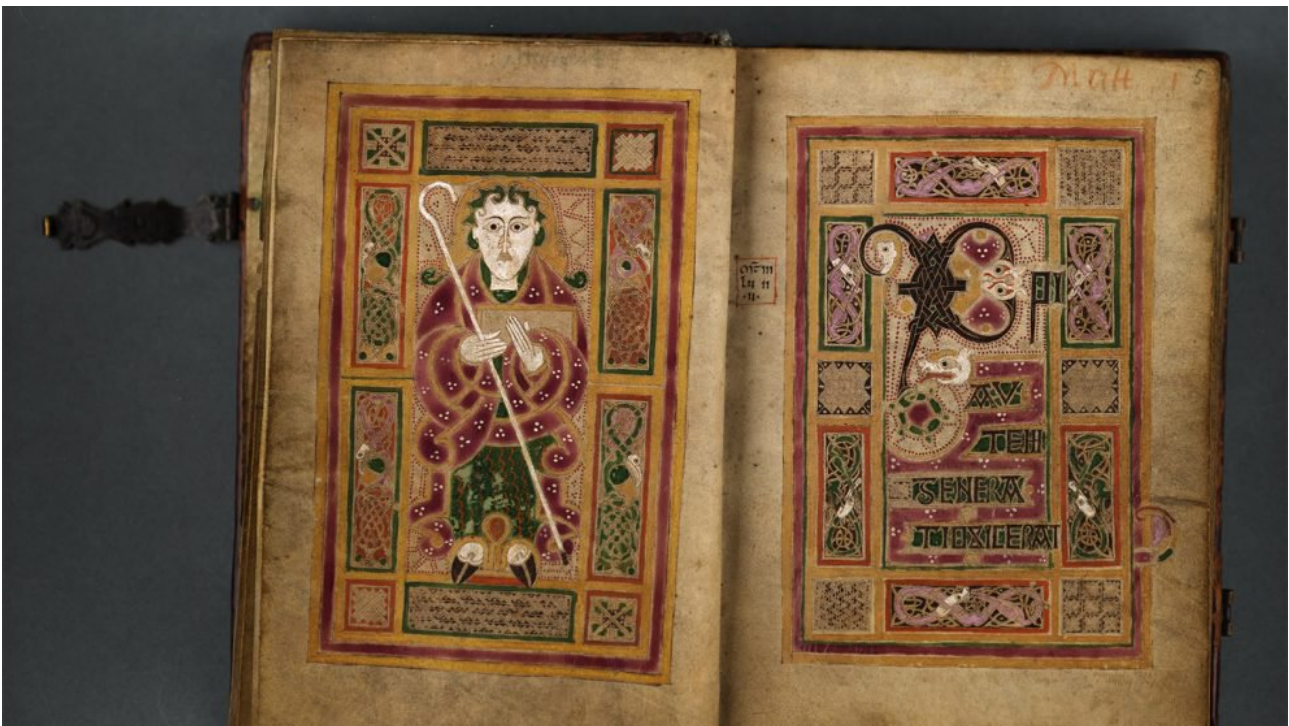 Matt. 1 5
XPI
AV·
TEM
GENERA
TIO SIC ERAT